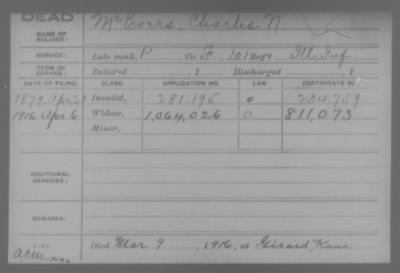 DEAD
NAME OF SOLDIER: McEvers, Charles N
SERVICE: Late rank, P Co. F, 101 Reg't Ill. Inf.
TERM OF SERVICE: Enlisted , 1 Discharged , 1
DATE OF FILING. CLASS. APPLICATION NO. LAW. CERTIFICATE NO.
1879 Apr 29 Invalid, 281.195 234.759
1916 Apr 6 Widow, 1,064,026 a 811,073
Minor,
ADDITIONAL SERVICES:
REMARKS:
Died Mar 9 , 1916, at Girard, Kans